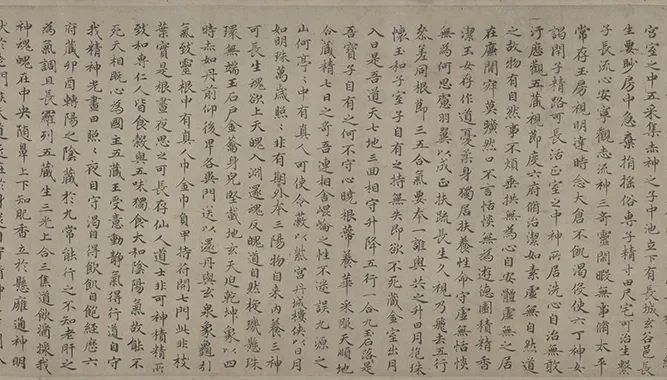 宮室之中五采集赤神之子中池立下有長城玄谷邑長
生要眇房中急棄捐搖俗専子精寸田尺宅可治生繫
子長流心安寧觀志流神三奇靈閒暇無事脩太平
常存玉房視明達時念大倉不飢渴役使六丁神女
謁閉子精路可長活正室之中神所居洗心自治無敢
汙歷觀五藏視節度六府脩治潔如素虛無自然道
之故物有自然事不煩垂拱無為心自安體虛無之居
在廉閒寂莫曠然口不言恬惔無為遊德園積精香
潔玉女存作道憂柔身獨居扶養性命守虛無恬惔
無為何思慮羽翼以成正扶疏長生久視乃飛去五行
參差同根節三五合氣要本一誰與共之升日月抱珠
懷玉和子室子自有之持無失即欲不死藏金室出月
入日是吾道天七地三回相守升降五行一合九玉石落是
吾寶子自有之何不守心曉根蔕養華采服天順地
合藏精七日之奇吾連相舍崐崘之性不迷誤九源之
山何亭亭中有真人可使令蔽以紫宮丹城樓俠以日月
如明珠萬歲照照非有期外本三陽物自來內養三神
可長生魂欲上天魄入淵還魂反魄道自然旋璣懸珠
環無端玉石戶金籥身兒堅載地玄天迫乾坤象以四
時赤如丹前仰後卑各異門送以還丹與玄泉象龜引
氣致靈根中有真人巾金巾負甲持符開七門此非枝
葉實是根晝夜思之可長存仙人道士非可神積精所
致和專仁人皆食穀與五味獨食太和陰陽氣故能不
死天相既心為國主五藏王受意動靜氣得行道自守
我精神光晝日照照夜自守渴自得飲飢自飽經歷六
府藏卯酉轉陽之陰藏於九常能行之不知老肝之
為氣調且長羅列五藏生三光上合三焦道飲漿揉我
神魂魄在中央隨鼻上下知肥香立於懸雍通神明